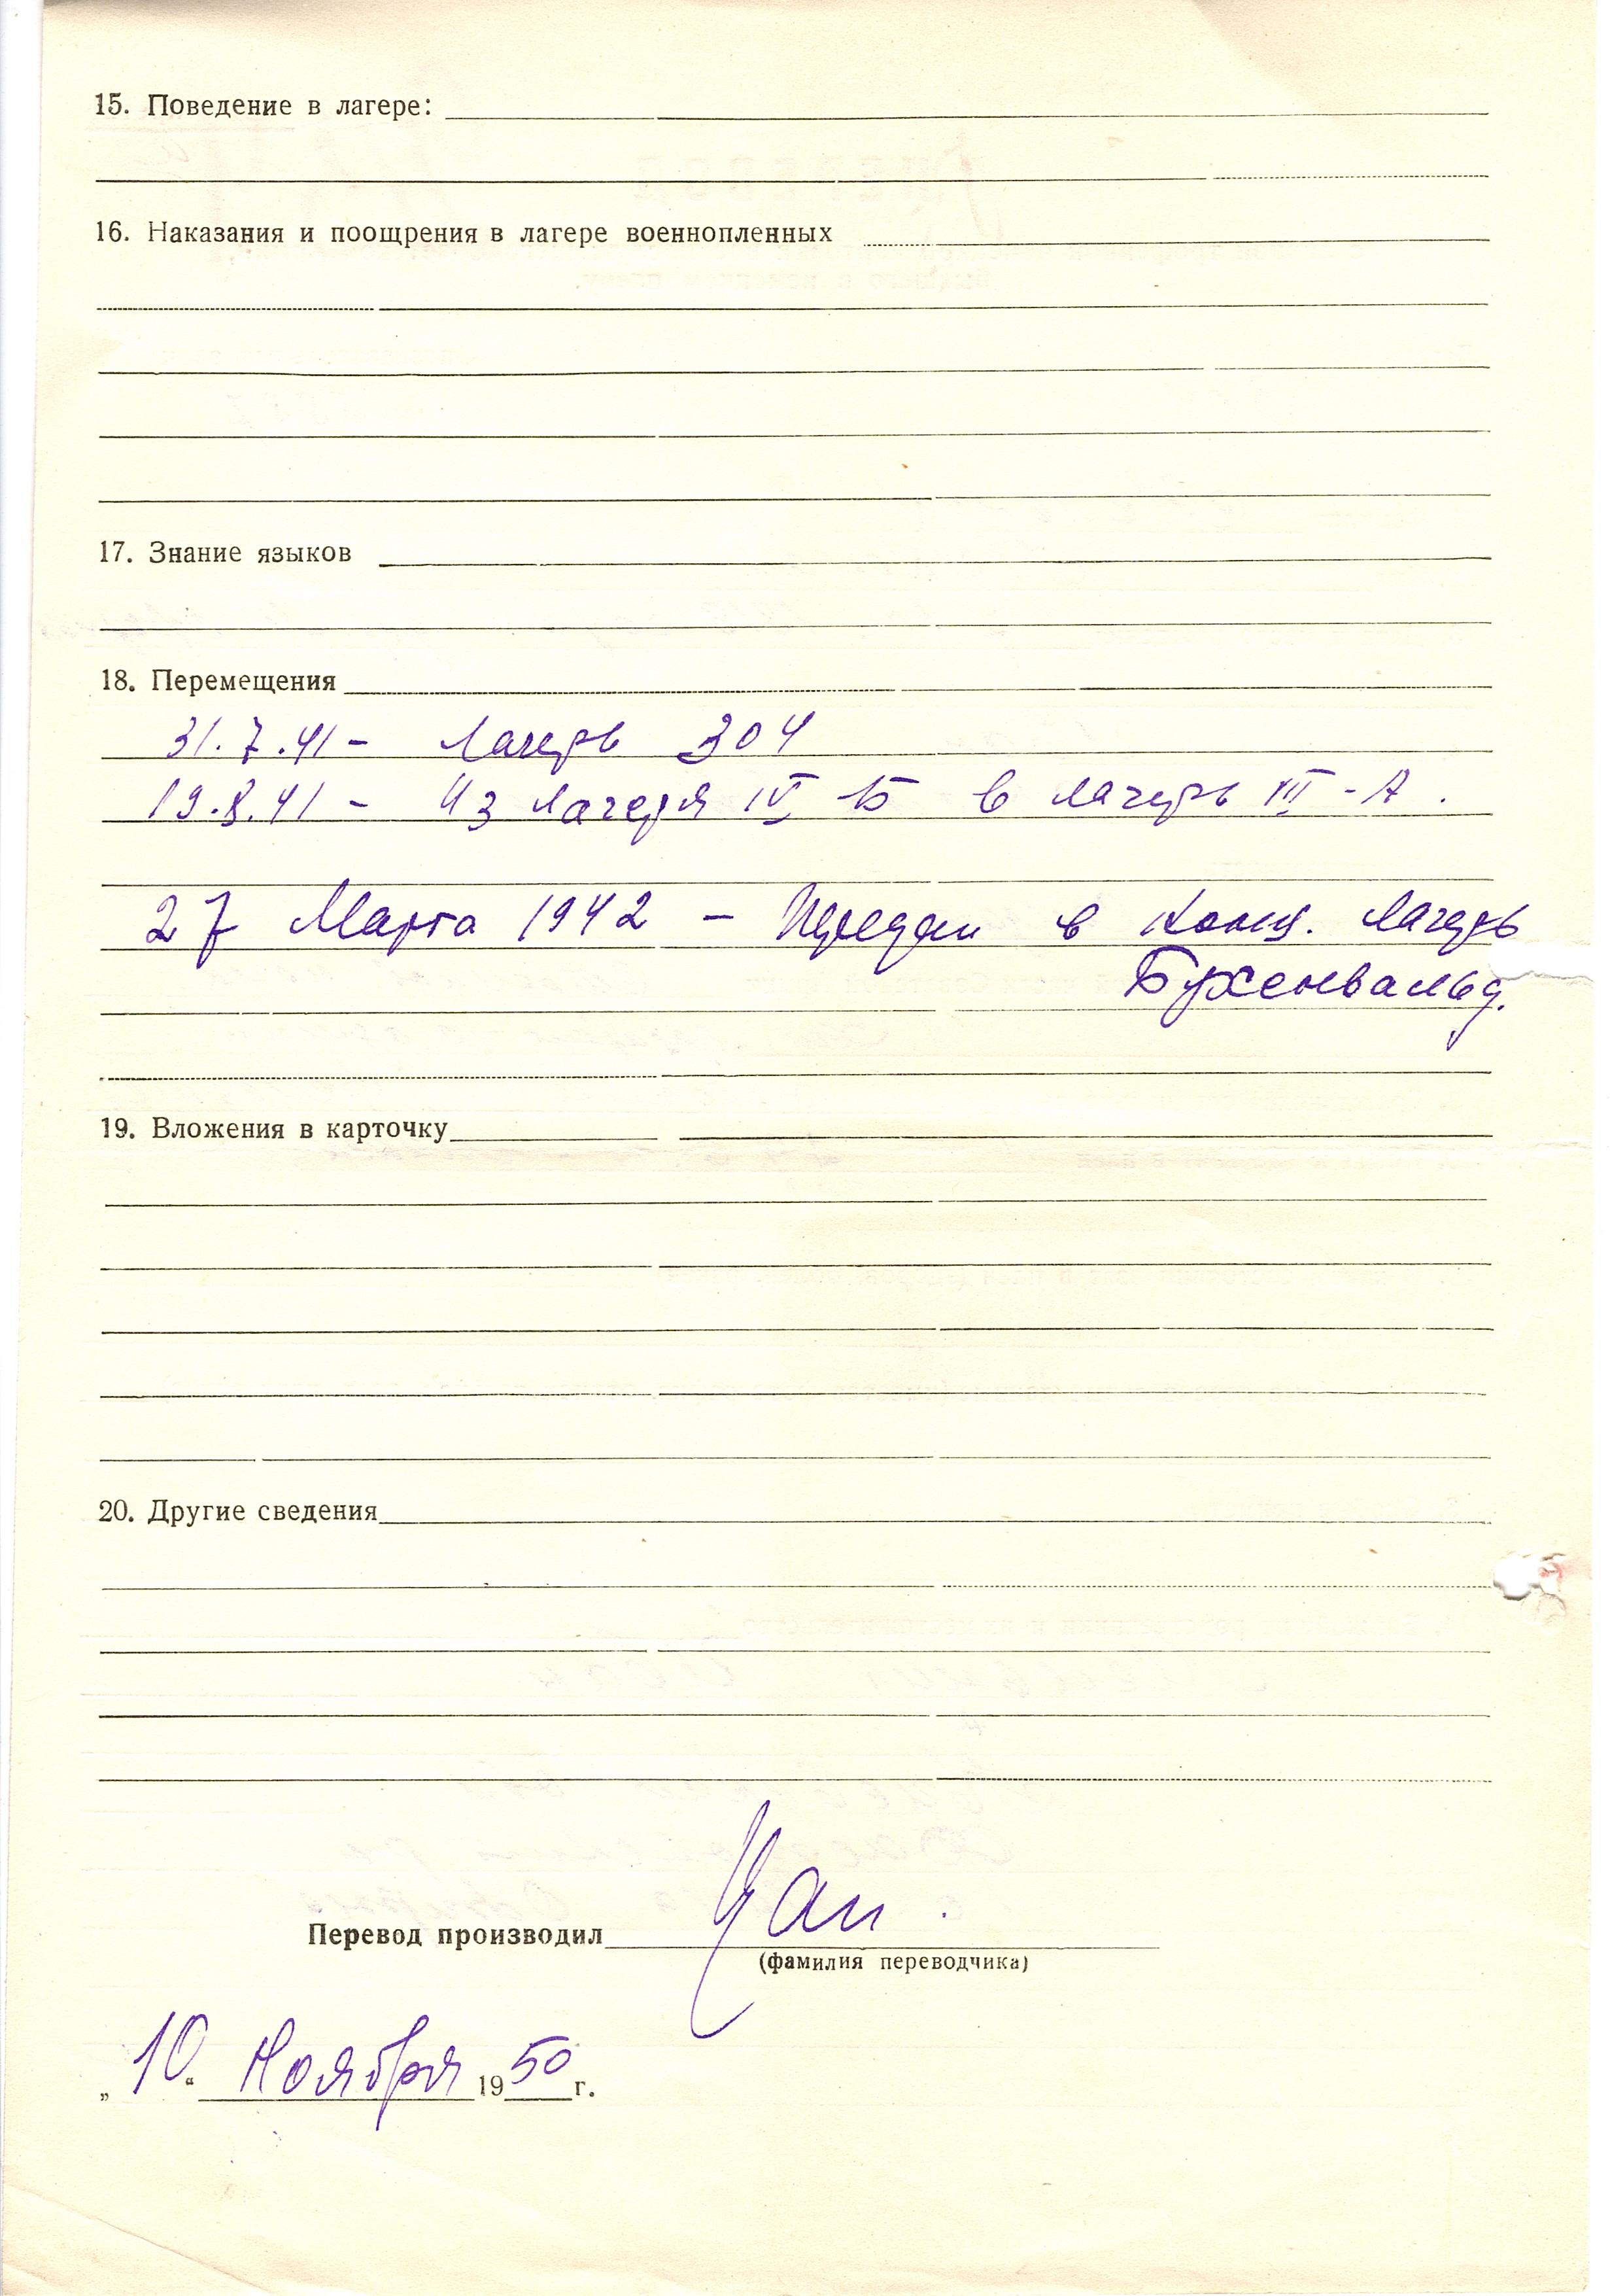 15. Поведение в лагере:
16. Наказания и поощрения в лагере военнопленных
17. Знание языков
18. Перемещения
31.7.41 - Лагерь 304
19.8.41 - Из лагеря IV Б в лагерь III - А.
27 Марта 1942 - Передан в конц. лагерь
Бухенвальд.
19. Вложения в карточку
20. Другие сведения
Перевод производил
(фамилия переводчика)
„ 10 “ Ноября 19 50 г.